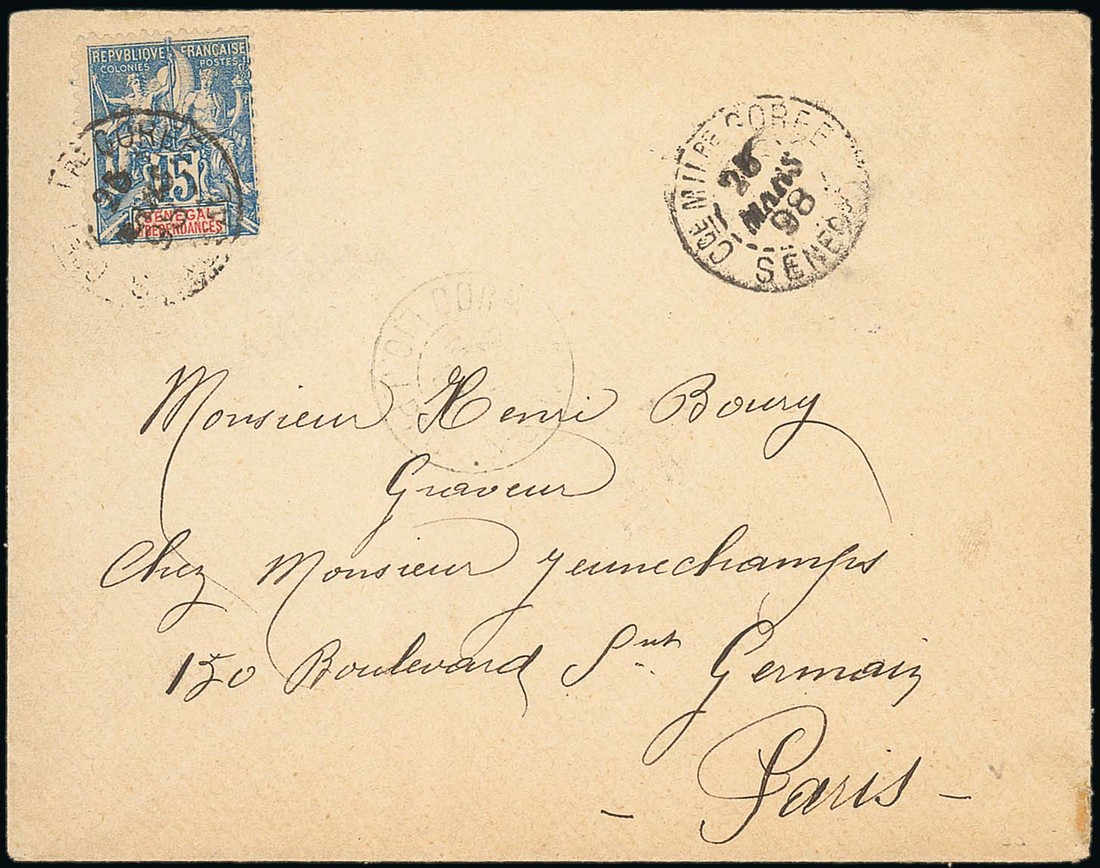 REPVBLIQVE FRANÇAISE
COLONIES POSTES
15
SENEGAL
ET DEPENDANCES
GOREE
Cᴰᴱ MILᴿᴱ GOREE
26
MARS
98
SENEGAL
Monsieur Henri Boury
Graveur
Chez Monsieur Jeunechamps
150 Boulevard Snt Germain
- Paris -